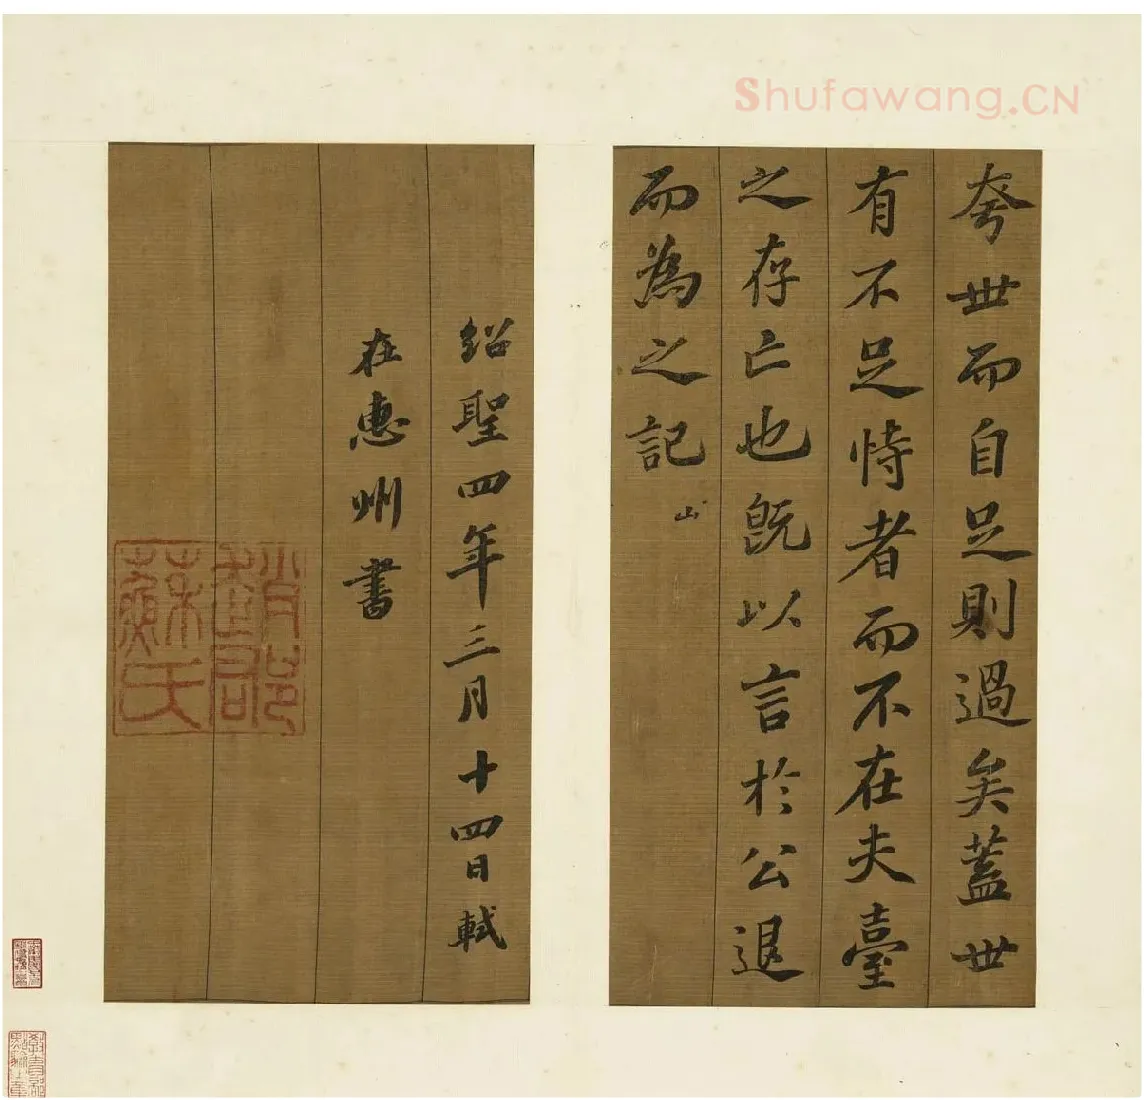 Shufawang.CN
夸世而自足則過矣蓋世
有不足恃者而不在夫臺
之存亡也既以言於公退
而為之記
山
紹聖四年三月十四日軾
在惠州書
趙郡
蘇氏